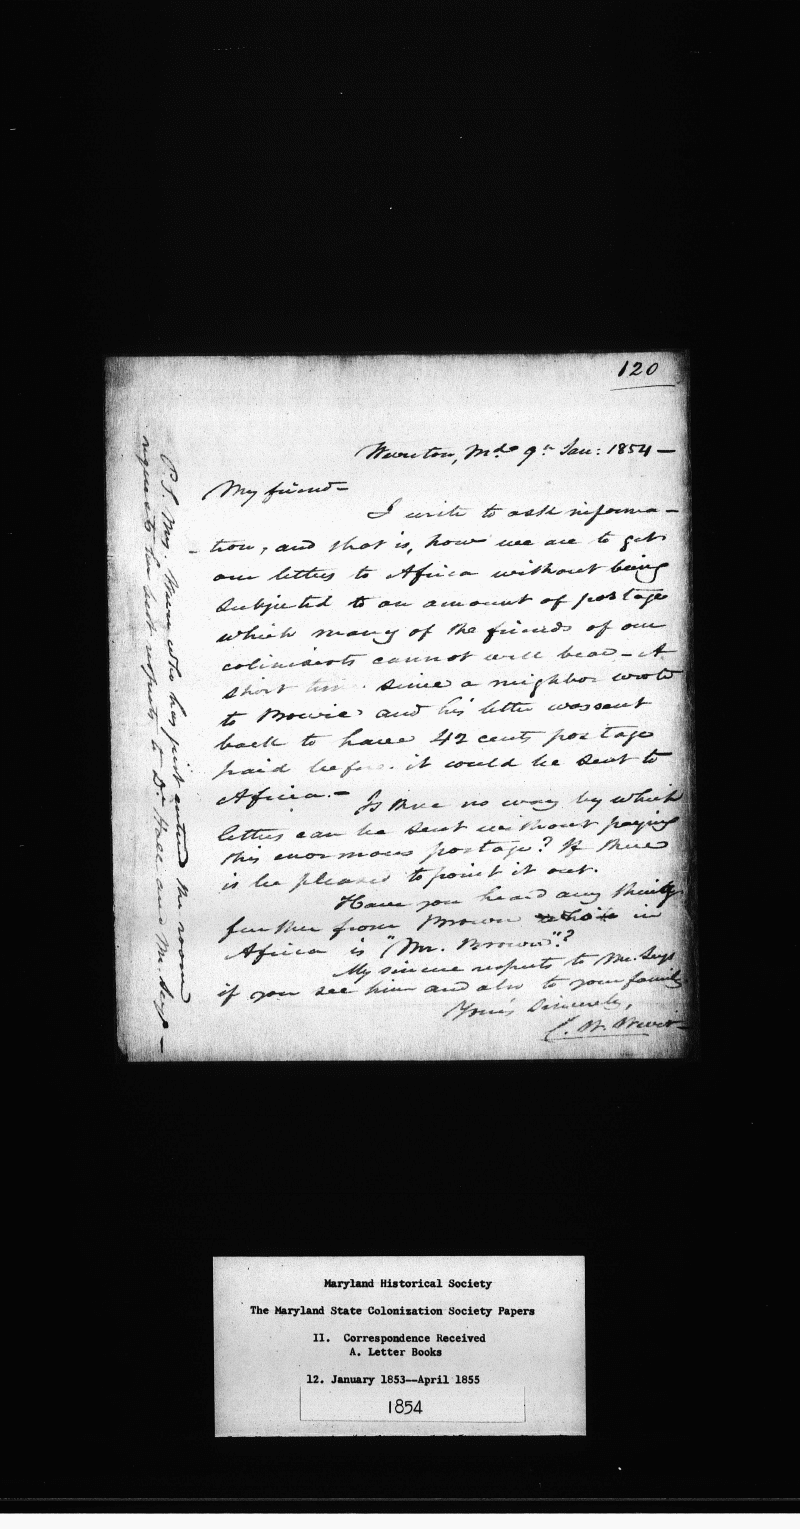 120
Weverton, Md. 9th Jan: 1854 —
My friend —
I write to ask informa-
-tion, and that is, how we are to get
our letters to Africa without being
subjected to an amount of postage
which many of the friends of our
colinisists cannot well bear — A
short time since a neighbor wrote
to Bowie and his letter was sent
back to have 42 cents postage
paid before it could be sent to
Africa. —
Is there no way by which
letters can be sent without paying
this enormous postage? If there
is be pleased to point it out.
Have you heard any thing
further from Brown in
Africa is "Mr. Brown"?
My sincere respects to Mr. Seys
if you see him and also to your family.
Yours Sincerely,
C. W.
P.S. Mrs. who has just entered the room
requests her best respects to Dr. Hall and Mr. Seys —
Maryland Historical Society
The Maryland State Colonization Society Papers
II. Correspondence Received
A. Letter Books
12. January 1853--April 1855
1854